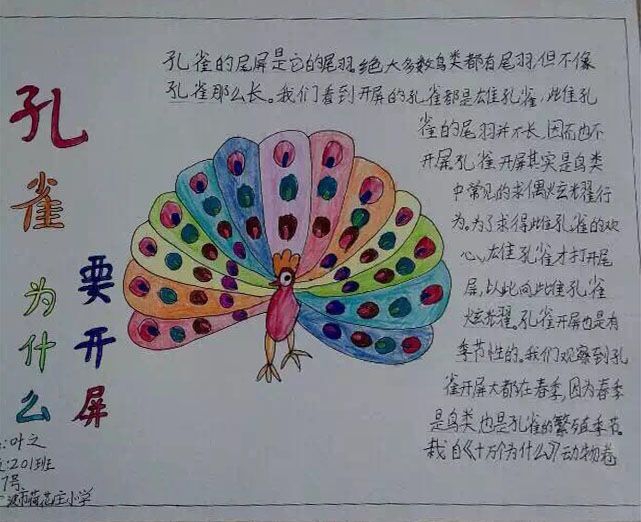 孔雀
为什么
要开屏
孔雀的尾屏是它的尾羽。绝大多数鸟类都有尾羽,但不像
孔雀那么长。我们看到开屏的孔雀都是雄孔雀,雌孔
雀的尾羽并不长,因而也不
开屏。孔雀开屏其实是鸟类
中常见的求偶炫耀行
为。为了求得雌孔雀的欢
心,雄孔雀才打开尾
屏,以此向雌孔雀
炫耀。孔雀开屏也是有
季节性的。我们观察到孔
雀开屏大都在春季,因为春季
是鸟类也是孔雀的繁殖季节。
栽自《十万个为什么》动物卷
:叶之
:201班
7号
市荷花庄小学